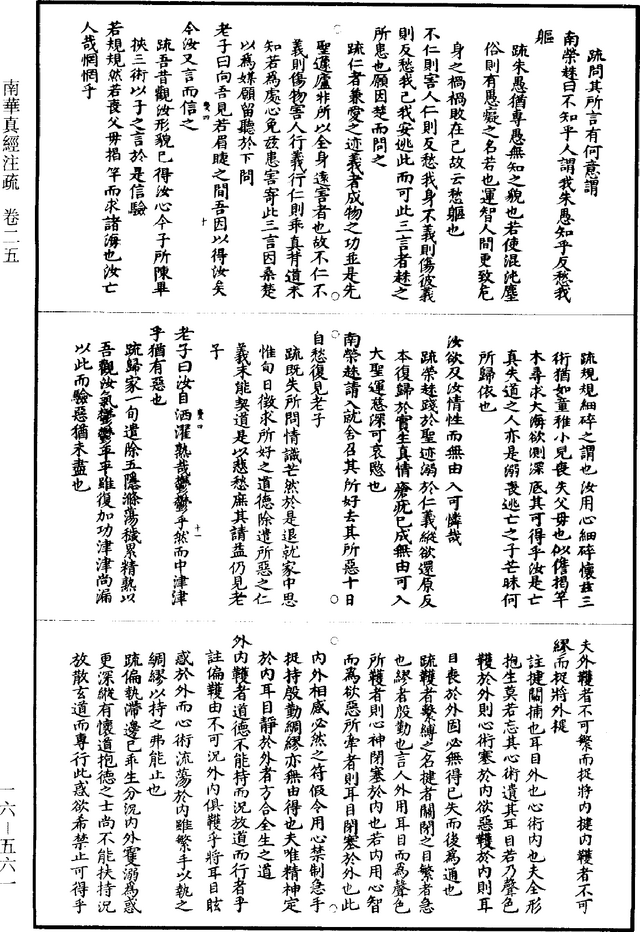 疏問其所言有何意謂
南榮趎曰不知乎人謂我朱愚知乎反愁我
軀
疏朱愚猶專愚無知之貌也若使混沌塵
俗則有愚癡之名若也運智人間更致危
身之禍禍敗在己故云愁軀也
不仁則害人仁則反愁我身不義則傷彼義
則反愁我己我安逃此而可此三言者趎之
所患也願因楚而問之
疏仁者兼愛之迹義者成物之功並是先
聖蘧廬非所以全身遠害者也故不仁不
義則傷物害人行義行仁則乖真背道未
知若為處心免茲患害寄此三言因桑楚
以為媒願留聽於下問
老子曰向吾見若眉睫之間吾因以得汝矣
今汝又言而信之
疏吾昔觀汝形貌已得汝心今子所陳畢
挾三術以子之言於是信驗
若規規然若喪父母揭竿而求諸海也汝亡
人哉惘惘乎
疏規規細碎之謂也汝用心細碎懷茲三
術猶如童稚小兒喪失父母也似儋揭竿
木尋求大海欲測深底其可得乎汝是亡
真失道之人亦是溺喪逃亡之子芒昧何
所歸依也
汝欲反汝情性而無由入可憐哉
疏榮趎踐於聖迹溺於仁義縱欲還原反
本復歸於實生真情瘡疣已成無由可入
大聖運慈深可哀愍也
南榮趎請入就舍召其所好去其所惡十日
自愁復見老子
疏既失所問情識芒然於是退就家中思
惟旬日徵求所好之道德除遣所惡之仁
義未能契道是以悲愁庶其請益仍見老
子
老子曰汝自洒濯熟哉鬱鬱乎然而中津津
乎猶有惡也
疏歸家一旬遣除五隱滌蕩穢累精熟以
吾觀汝氣鬱鬱乎平雖復加功津津尚漏
以此而驗惡猶未盡也
夫外韄者不可繁而捉將內揵內韄者不可
繆而捉將外揵
註揵關捕也耳目外也心術內也夫全形
抱生莫若忘其心術遺其耳目若乃聲色
韄於外則心術塞於內欲惡韄於內則耳
目喪於外固必無得已失而後為通也
疏韄者繫縛之名揵者關閉之目繁者急
也繆者殷勤也言人外用耳目而為聲色
所韄者則心神閉塞於內也若內用心智
而為欲惡所牽者則耳目閉塞於外也此
內外相感必然之符假令用心禁制急手
捉持殷勤綢繆亦無由得也夫唯精神定
於內耳目靜於外者方合全生之道
外內韄者道德不能持而況放道而行者乎
註偏韄由不可況外內俱韄乎將耳目眩
惑於外而心術流蕩於內雖繁手以執之
綢繆以持之弗能止也
疏偏執滯邊已乖生分況內外雙溺為惑
更深縱有懷道抱德之士尚不能扶持況
放散玄道而專行此惑欲希禁止可得乎
南華真經注疏　卷二五
一六—五六一